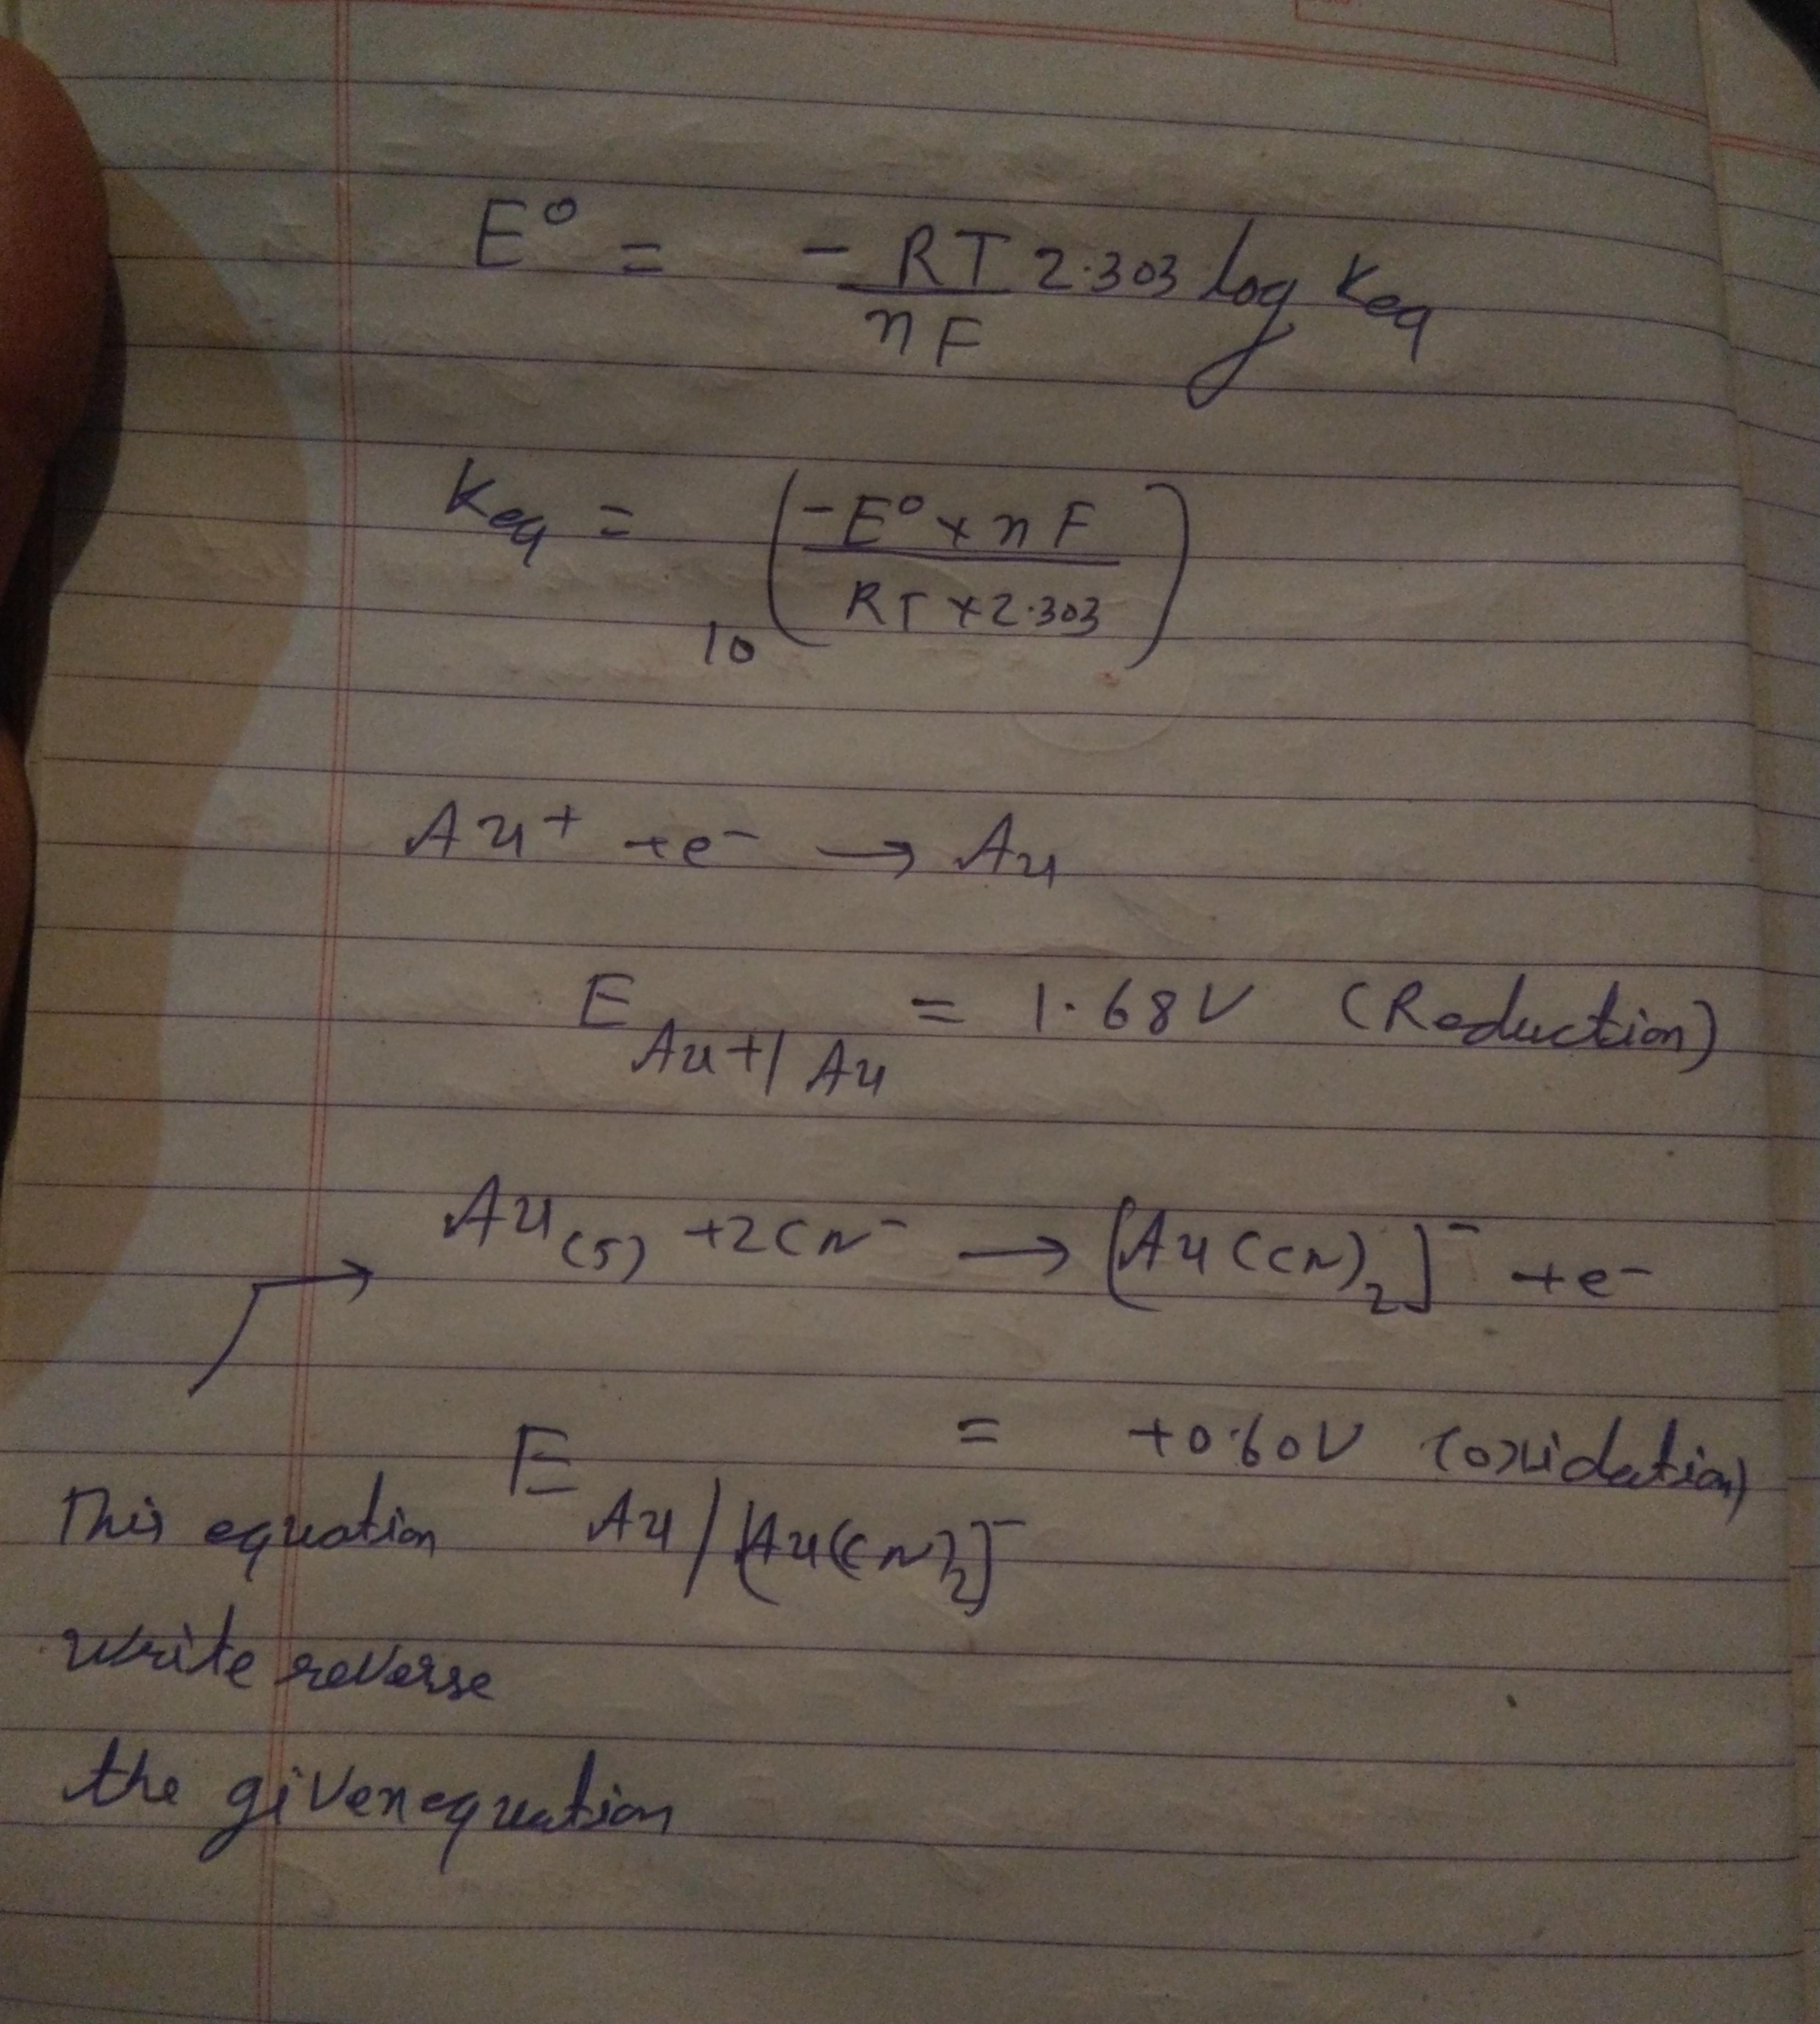 E° = - RT/nF 2.303 log Keq
Keq = 10^(-E° × nF / RT × 2.303)
Au+ + e- → Au
E Au+/Au = 1.68V (Reduction)
Au(s) + 2CN- → [Au(CN)2]- + e-
E Au/[Au(CN)2]- = +0.60V (oxidation)
This equation
write reverse
the given equation